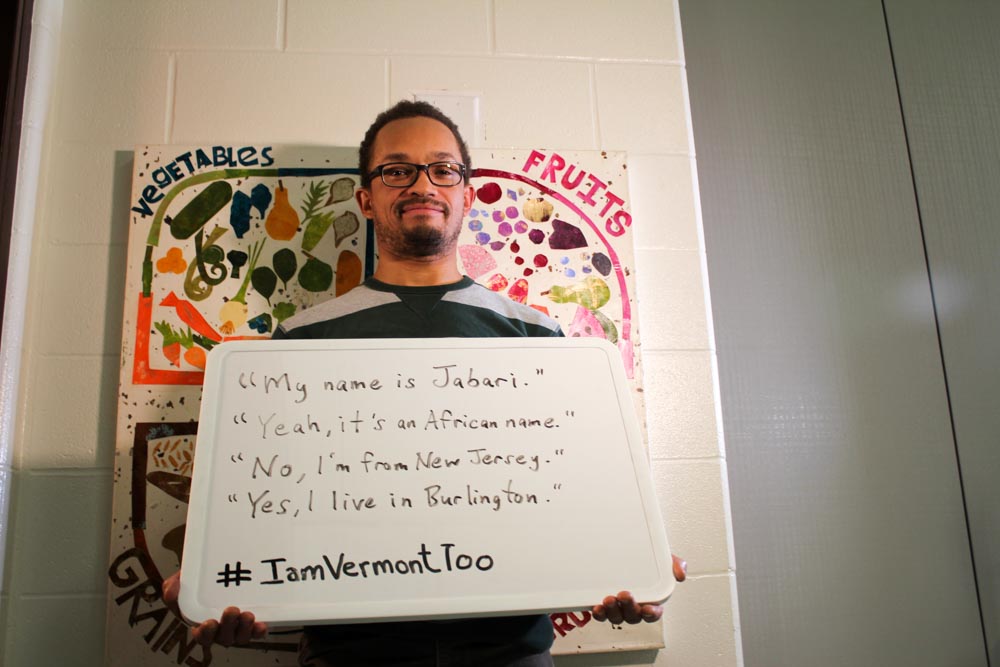 vegeTABLES
FRUITS
"My name is Jabari."
"Yeah, it's an African name."
"No, I'm from New Jersey."
"Yes, I live in Burlington."
#IamVermontToo
GRAINS